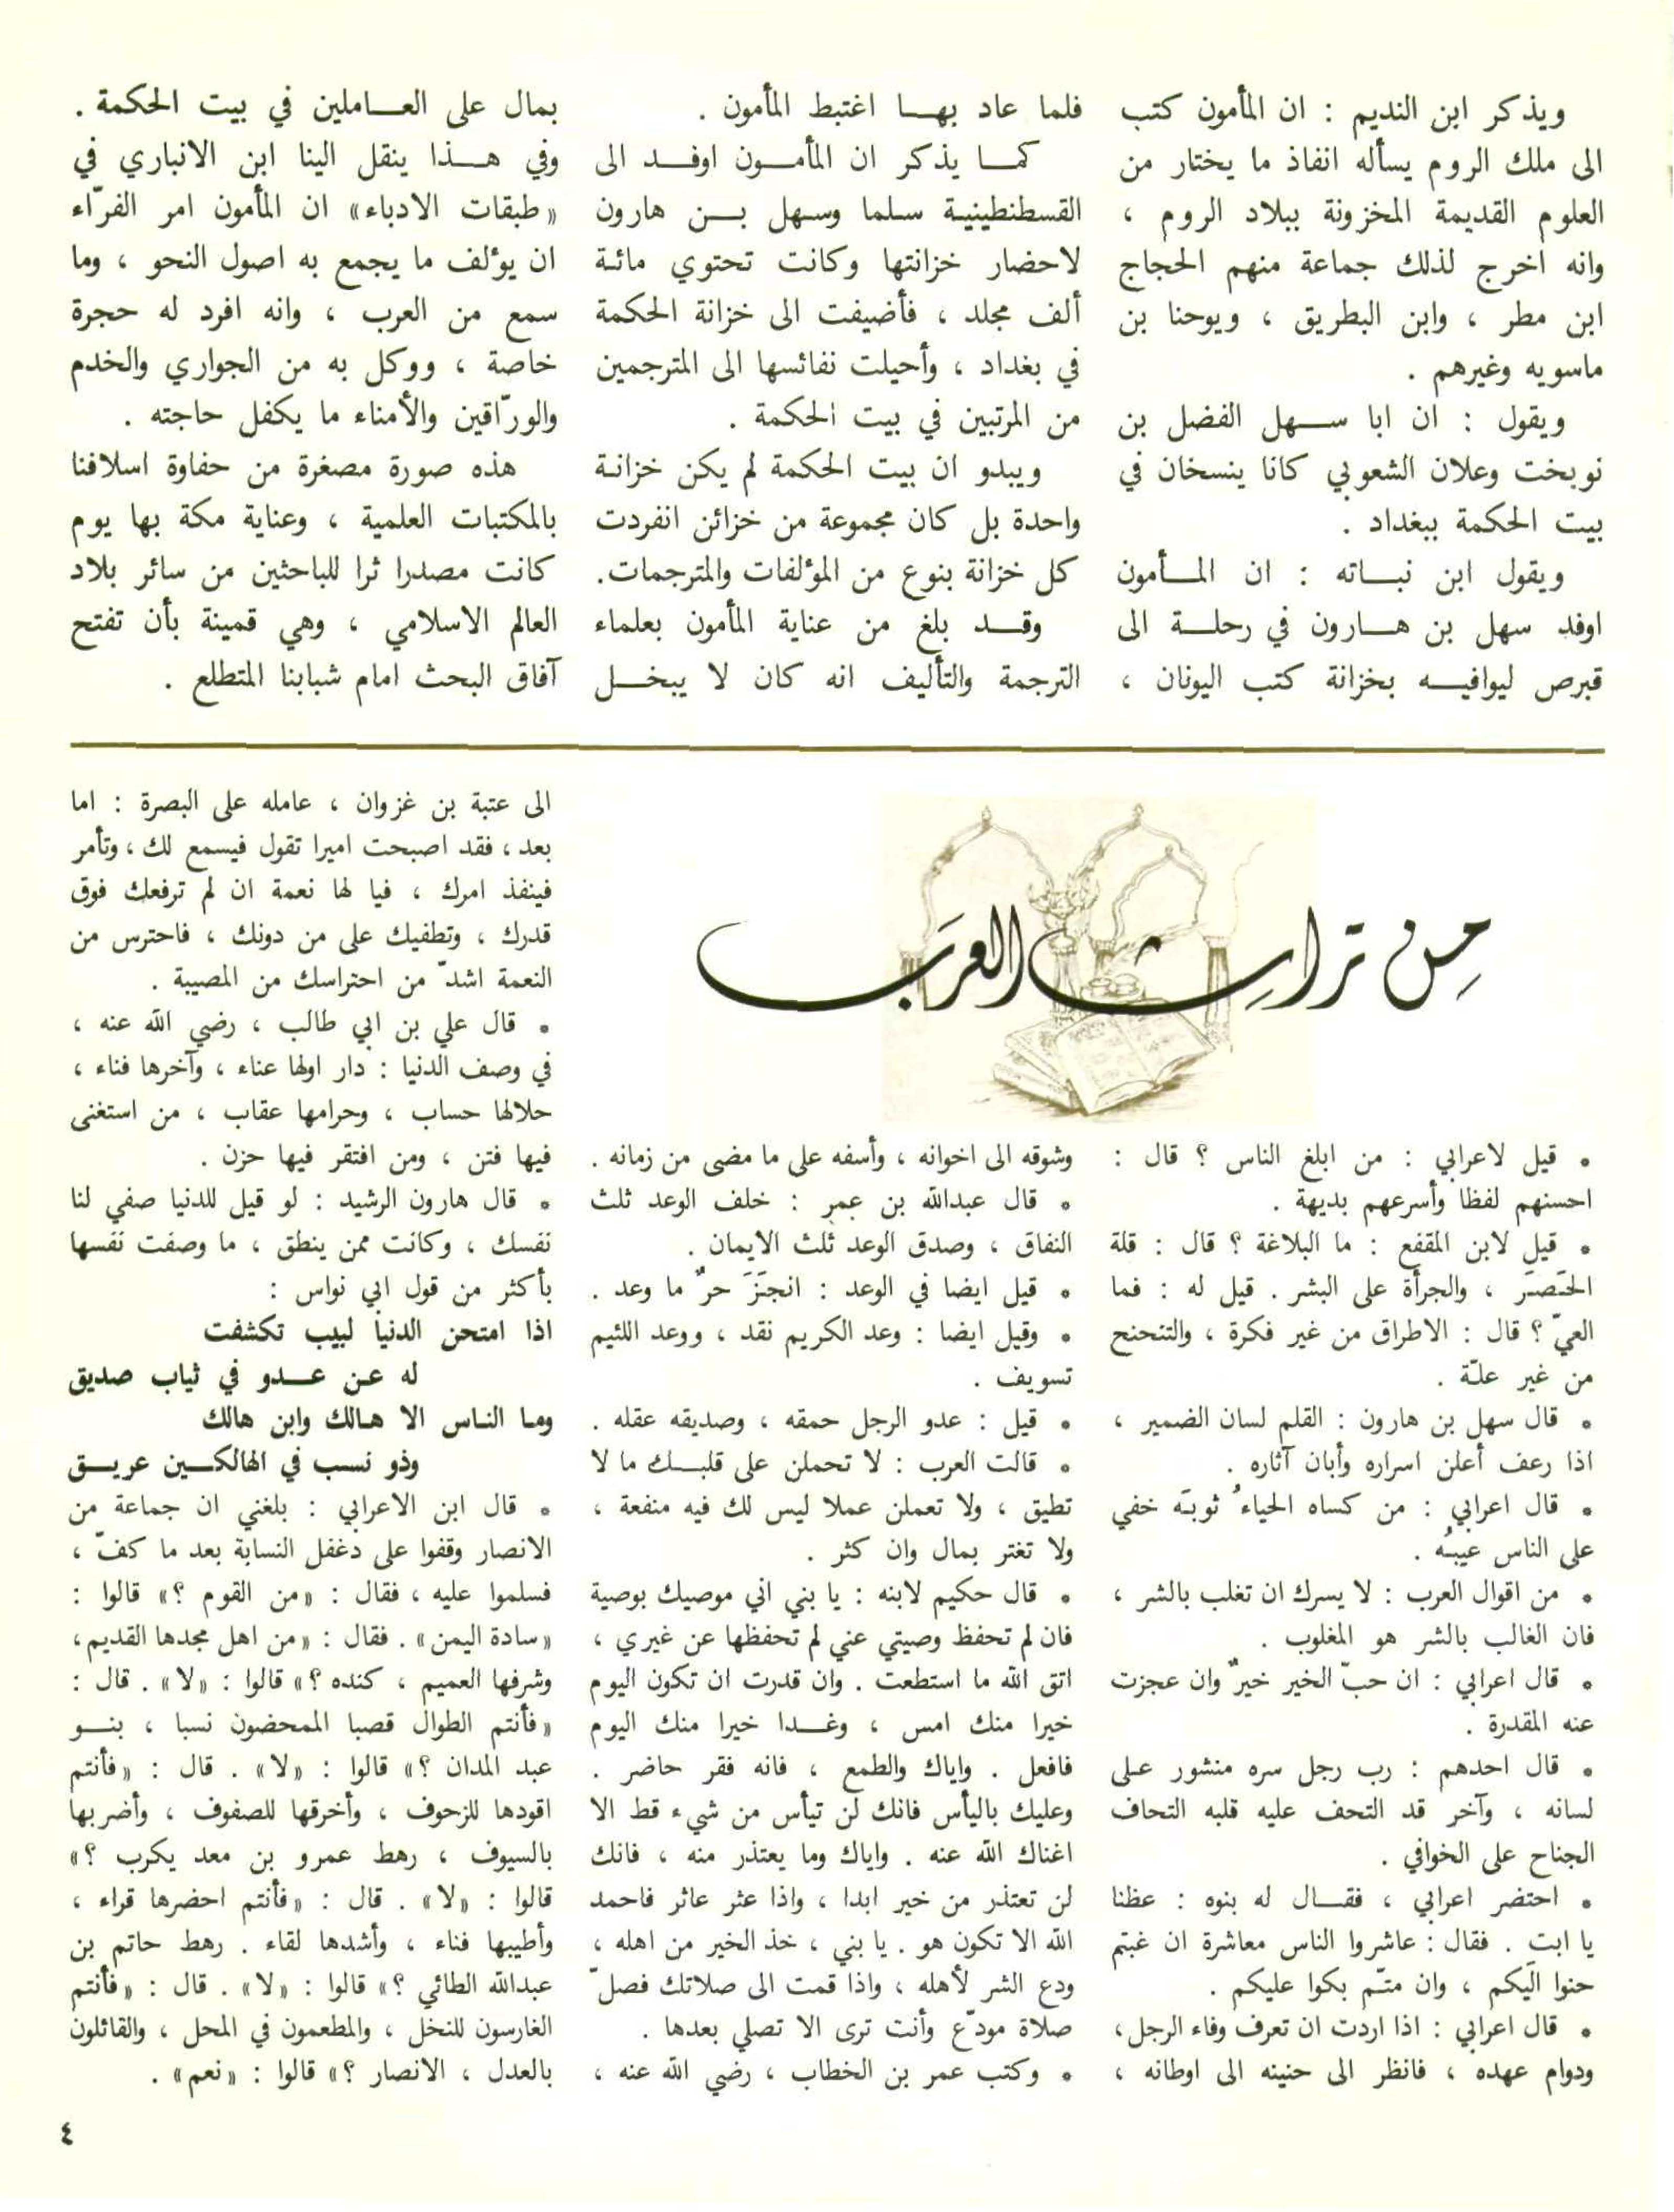 ويذكر ابن النديم : ان المأمون كتب
الى ملك الروم يسأله انفاذ ما يختار من
العلوم القديمة المخزونة ببلاد الروم ،
وانه اخرج لذلك جماعة منهم الحجاج
ابن مطر ، وابن البطريق ، ويوحنا بن
ماسويه وغيرهم .
ويقول : ان ابا سهل الفضل بن
نوبخت وعلان الشعوبي كانا ينسخان في
بيت الحكمة ببغداد .
ويقول ابن نباته : ان المأمون
اوفد سهل بن هارون في رحلة الى
قبرص ليوافيه بخزانة كتب اليونان ،
فلما عاد بها اغتبط المأمون .
كما يذكر ان المأمون اوفد الى
القسطنطينية سلما وسهل بن هارون
لاحضار خزانتها وكانت تحتوي مائة
ألف مجلد ، فأضيفت الى خزانة الحكمة
في بغداد ، وأحيلت نفائسها الى المترجمين
من المرتبين في بيت الحكمة .
ويبدو ان بيت الحكمة لم يكن خزانة
واحدة بل كان مجموعة من خزائن انفردت
كل خزانة بنوع من المؤلفات والمترجمات.
وقد بلغ من عناية المأمون بعلماء
الترجمة والتأليف انه كان لا يبخل
بمال على العاملين في بيت الحكمة .
وفي هذا ينقل الينا ابن الانباري في
«طبقات الادباء» ان المأمون امر الفرّاء
ان يؤلف ما يجمع به اصول النحو ، وما
سمع من العرب ، وانه افرد له حجرة
خاصة ، ووكل به من الجواري والخدم
والورّاقين والأمناء ما يكفل حاجته .
هذه صورة مصغرة من حفاوة اسلافنا
بالمكتبات العلمية ، وعناية مكة بها يوم
كانت مصدرا ثرا للباحثين من سائر بلاد
العالم الاسلامي ، وهي قمينة بأن تفتح
آفاق البحث امام شبابنا المتطلع .
مِن تراثِ العَرَب
• قيل لاعرابي : من ابلغ الناس ؟ قال :
احسنهم لفظا وأسرعهم بديهة .
• قيل لابن المقفع : ما البلاغة ؟ قال : قلة
الحَصَر ، والجرأة على البشر . قيل له : فما
العيّ ؟ قال : الاطراق من غير فكرة ، والتنحنح
من غير علّة .
• قال سهل بن هارون : القلم لسان الضمير ،
اذا رعف أعلن اسراره وأبان آثاره .
• قال اعرابي : من كساه الحياءُ ثوبَه خفي
على الناس عيبُه .
• من اقوال العرب : لا يسرك ان تغلب بالشر ،
فان الغالب بالشر هو المغلوب .
• قال اعرابي : ان حبّ الخير خيرٌ وان عجزت
عنه المقدرة .
• قال احدهم : رب رجل سره منشور على
لسانه ، وآخر قد التحف عليه قلبه التحاف
الجناح على الخوافي .
• احتضر اعرابي ، فقال له بنوه : عظنا
يا ابتِ . فقال : عاشروا الناس معاشرة ان غبتم
حنوا اليكم ، وان متّم بكوا عليكم .
• قال اعرابي : اذا اردت ان تعرف وفاء الرجل،
ودوام عهده ، فانظر الى حنينه الى اوطانه ،
وشوقه الى اخوانه ، وأسفه على ما مضى من زمانه .
• قال عبدالله بن عمر : خلف الوعد ثلث
النفاق ، وصدق الوعد ثلث الايمان .
• قيل ايضا في الوعد : انجَزَ حرٌ ما وعد .
• وقيل ايضا : وعد الكريم نقد ، ووعد اللئيم
تسويف .
• قيل : عدو الرجل حمقه ، وصديقه عقله .
• قالت العرب : لا تحملن على قلبك ما لا
تطيق ، ولا تعملن عملا ليس لك فيه منفعة ،
ولا تغتر بمال وان كثر .
• قال حكيم لابنه : يا بني اني موصيك بوصية
فان لم تحفظ وصيتي عني لم تحفظها عن غيري ،
اتق الله ما استطعت . وان قدرت ان تكون اليوم
خيرا منك امس ، وغدا خيرا منك اليوم
فافعل . واياك والطمع ، فانه فقر حاضر .
وعليك باليأس فانك لن تيأس من شيء قط الا
اغناك الله عنه . واياك وما يعتذر منه ، فانك
لن تعتذر من خير ابدا ، واذا عثر عاثر فاحمد
الله الا تكون هو . يا بني ، خذ الخير من اهله ،
ودع الشر لأهله ، واذا قمت الى صلاتك فصلّ
صلاة مودّع وأنت ترى الا تصلي بعدها .
• وكتب عمر بن الخطاب ، رضي الله عنه ،
الى عتبة بن غزوان ، عامله على البصرة : اما
بعد ، فقد اصبحت اميرا تقول فيسمع لك ، وتأمر
فينفذ امرك ، فيا لها نعمة ان لم ترفعك فوق
قدرك ، وتطفيك على من دونك ، فاحترس من
النعمة اشدّ من احتراسك من المصيبة .
• قال علي بن ابي طالب ، رضي الله عنه ،
في وصف الدنيا : دار اولها عناء ، وآخرها فناء ،
حلالها حساب ، وحرامها عقاب ، من استغنى
فيها فتن ، ومن افتقر فيها حزن .
• قال هارون الرشيد : لو قيل للدنيا صفي لنا
نفسك ، وكانت ممن ينطق ، ما وصفت نفسها
بأكثر من قول ابي نواس :
اذا امتحن الدنيا لبيب تكشفت
له عن عدو في ثياب صديق
وما الناس الا هالك وابن هالك
وذو نسب في الهالكين عريق
• قال ابن الاعرابي : بلغني ان جماعة من
الانصار وقفوا على دغفل النسابة بعد ما كفّ ،
فسلموا عليه ، فقال : «من القوم ؟» قالوا :
«سادة اليمن» . فقال : «من اهل مجدها القديم،
وشرفها العميم ، كنده ؟» قالوا : «لا» . قال :
«فأنتم الطوال قصبا الممحضون نسبا ، بنو
عبد المدان ؟» قالوا : «لا» . قال : «فأنتم
اقودها للزحوف ، وأخرقها للصفوف ، وأضربها
بالسيوف ، رهط عمرو بن معد يكرب ؟»
قالوا : «لا» . قال : «فأنتم احضرها قراء ،
وأطيبها فناء ، وأشدها لقاء . رهط حاتم بن
عبدالله الطائي ؟» قالوا : «لا» . قال : «فأنتم
الغارسون للنخل ، والمطعمون في المحل ، والقائلون
بالعدل ، الانصار ؟» قالوا : «نعم» .
٤